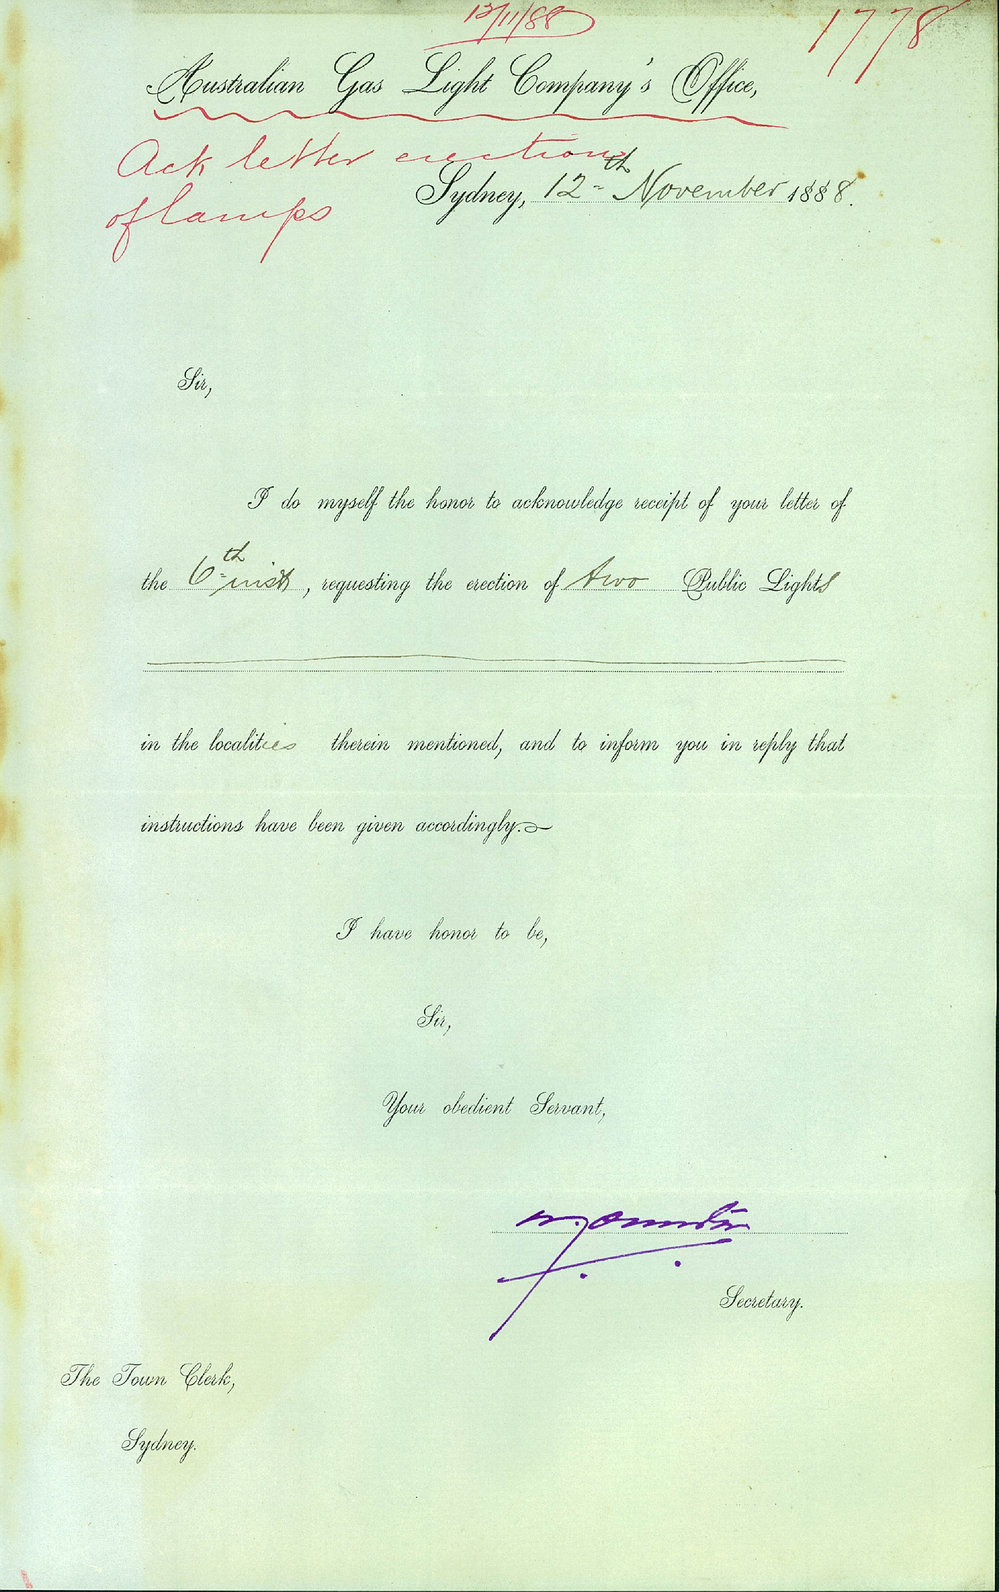 12/11/88
1778
Australian Gas Light Company's Office,
Ack letter erection
of lamps
Sydney, 12th November 1888.
Sir,
I do myself the honor to acknowledge receipt of your letter of
the 6th inst, requesting the erection of two Public Lights
in the localities therein mentioned, and to inform you in reply that
instructions have been given accordingly.
I have honor to be,
Sir,
Your obedient Servant,
Secretary.
The Town Clerk,
Sydney.